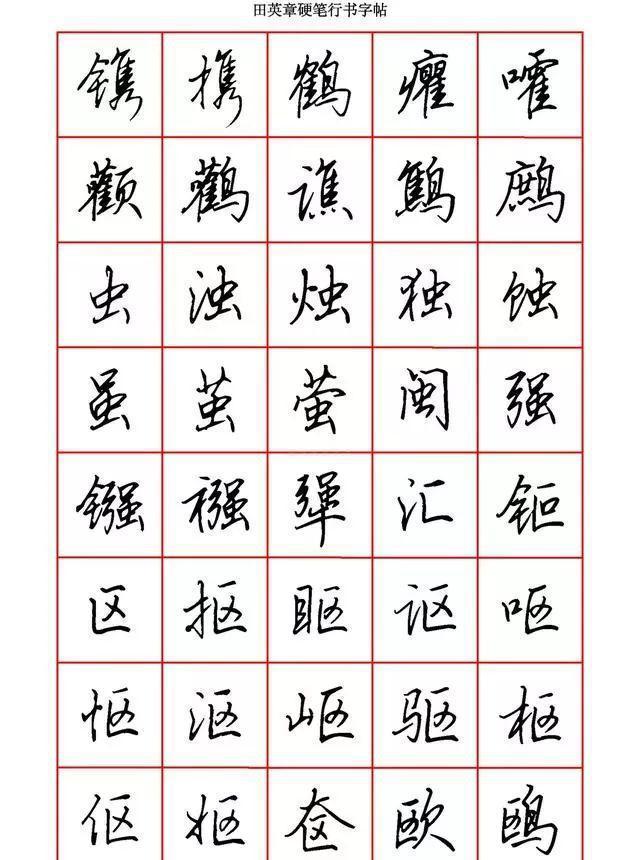 田英章硬笔行书字帖
镌携鹤癯嚯
颧鹳谯鹪鹧
虫浊烛独蚀
虽茧萤闽强
镪襁犟汇钷
区抠眍讴呕
怄沤岖驱枢
伛妪奁欧鸥